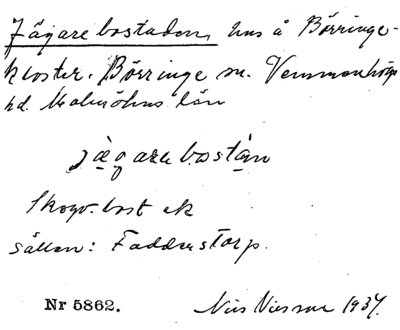 Jägarebostaden, hus å Börringe-
kloster. Börringe sn. Vemmenhögs
hd. Malmöhus län
jägarebostán
Skogv.bost ek
sällan: Faddrestorp.
Nr 5862. Nils Nilsson 1937.